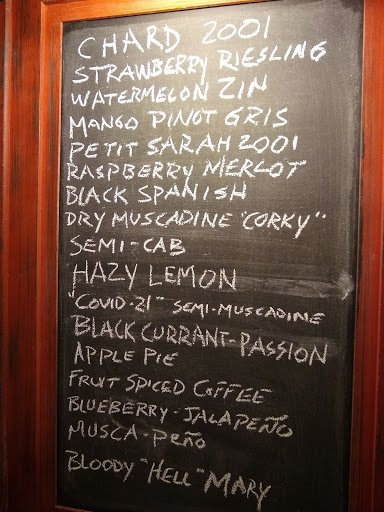 CHARD 2001
STRAWBERRY RIESLING
WATERMELON ZIN
MANGO PINOT GRIS
PETIT SARAH 2001
RASPBERRY MERLOT
BLACK SPANISH
DRY MUSCADINE "CORKY"
SEMI-CAB
HAZY LEMON
"COVID-21" SEMI-MUSCADINE
BLACK CURRANT-PASSION
APPLE PIE
FRUIT SPICED COFFEE
BLUEBERRY-JALAPEÑO
MUSCA-PEÑO
BLOODY "HELL" MARY